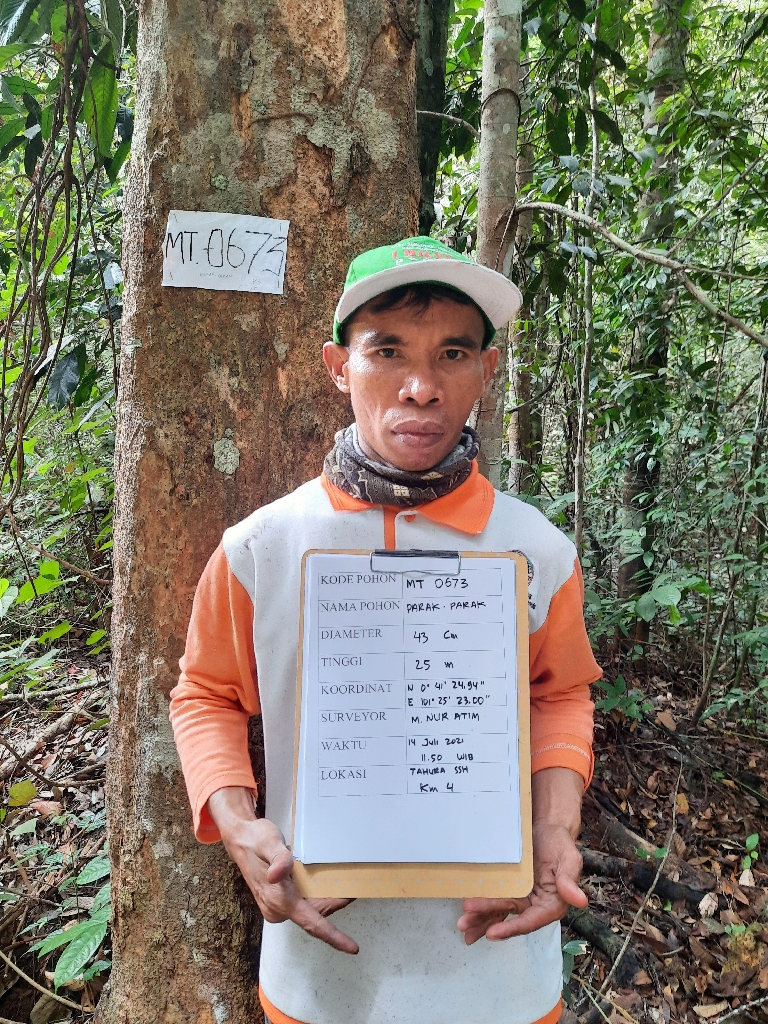 MT. 0673
KODE POHON MT 0673
NAMA POHON PARAK-PARAK
DIAMETER 43 Cm
TINGGI 25 m
KOORDINAT N 0° 41' 24.94"
E 101° 25' 23.00"
SURVEYOR M. NUR ATIM
WAKTU 14 Juli 2021
11.50 WIB
LOKASI TAHURA SSH
Km 4